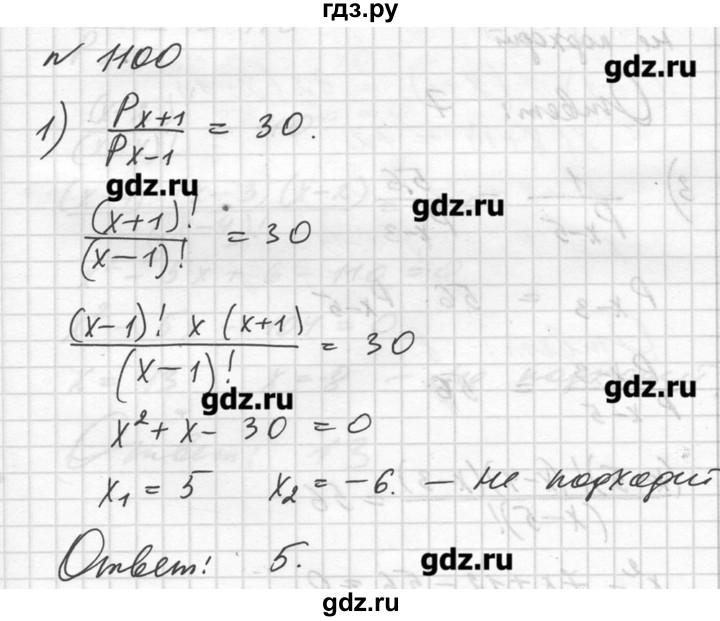 гдз.ру
№ 1100
gdz.ru
1) P_{x+1} / P_{x-1} = 30.
gdz.ru
gdz.ru
(x+1)! / (x-1)! = 30
(x-1)! x (x+1) / (x-1)! = 30
gdz.ru
gdz.ru
x² + x - 30 = 0
x₁ = 5 x₂ = -6. - не подходит
Ответ: 5.
gdz.ru
gdz.ru